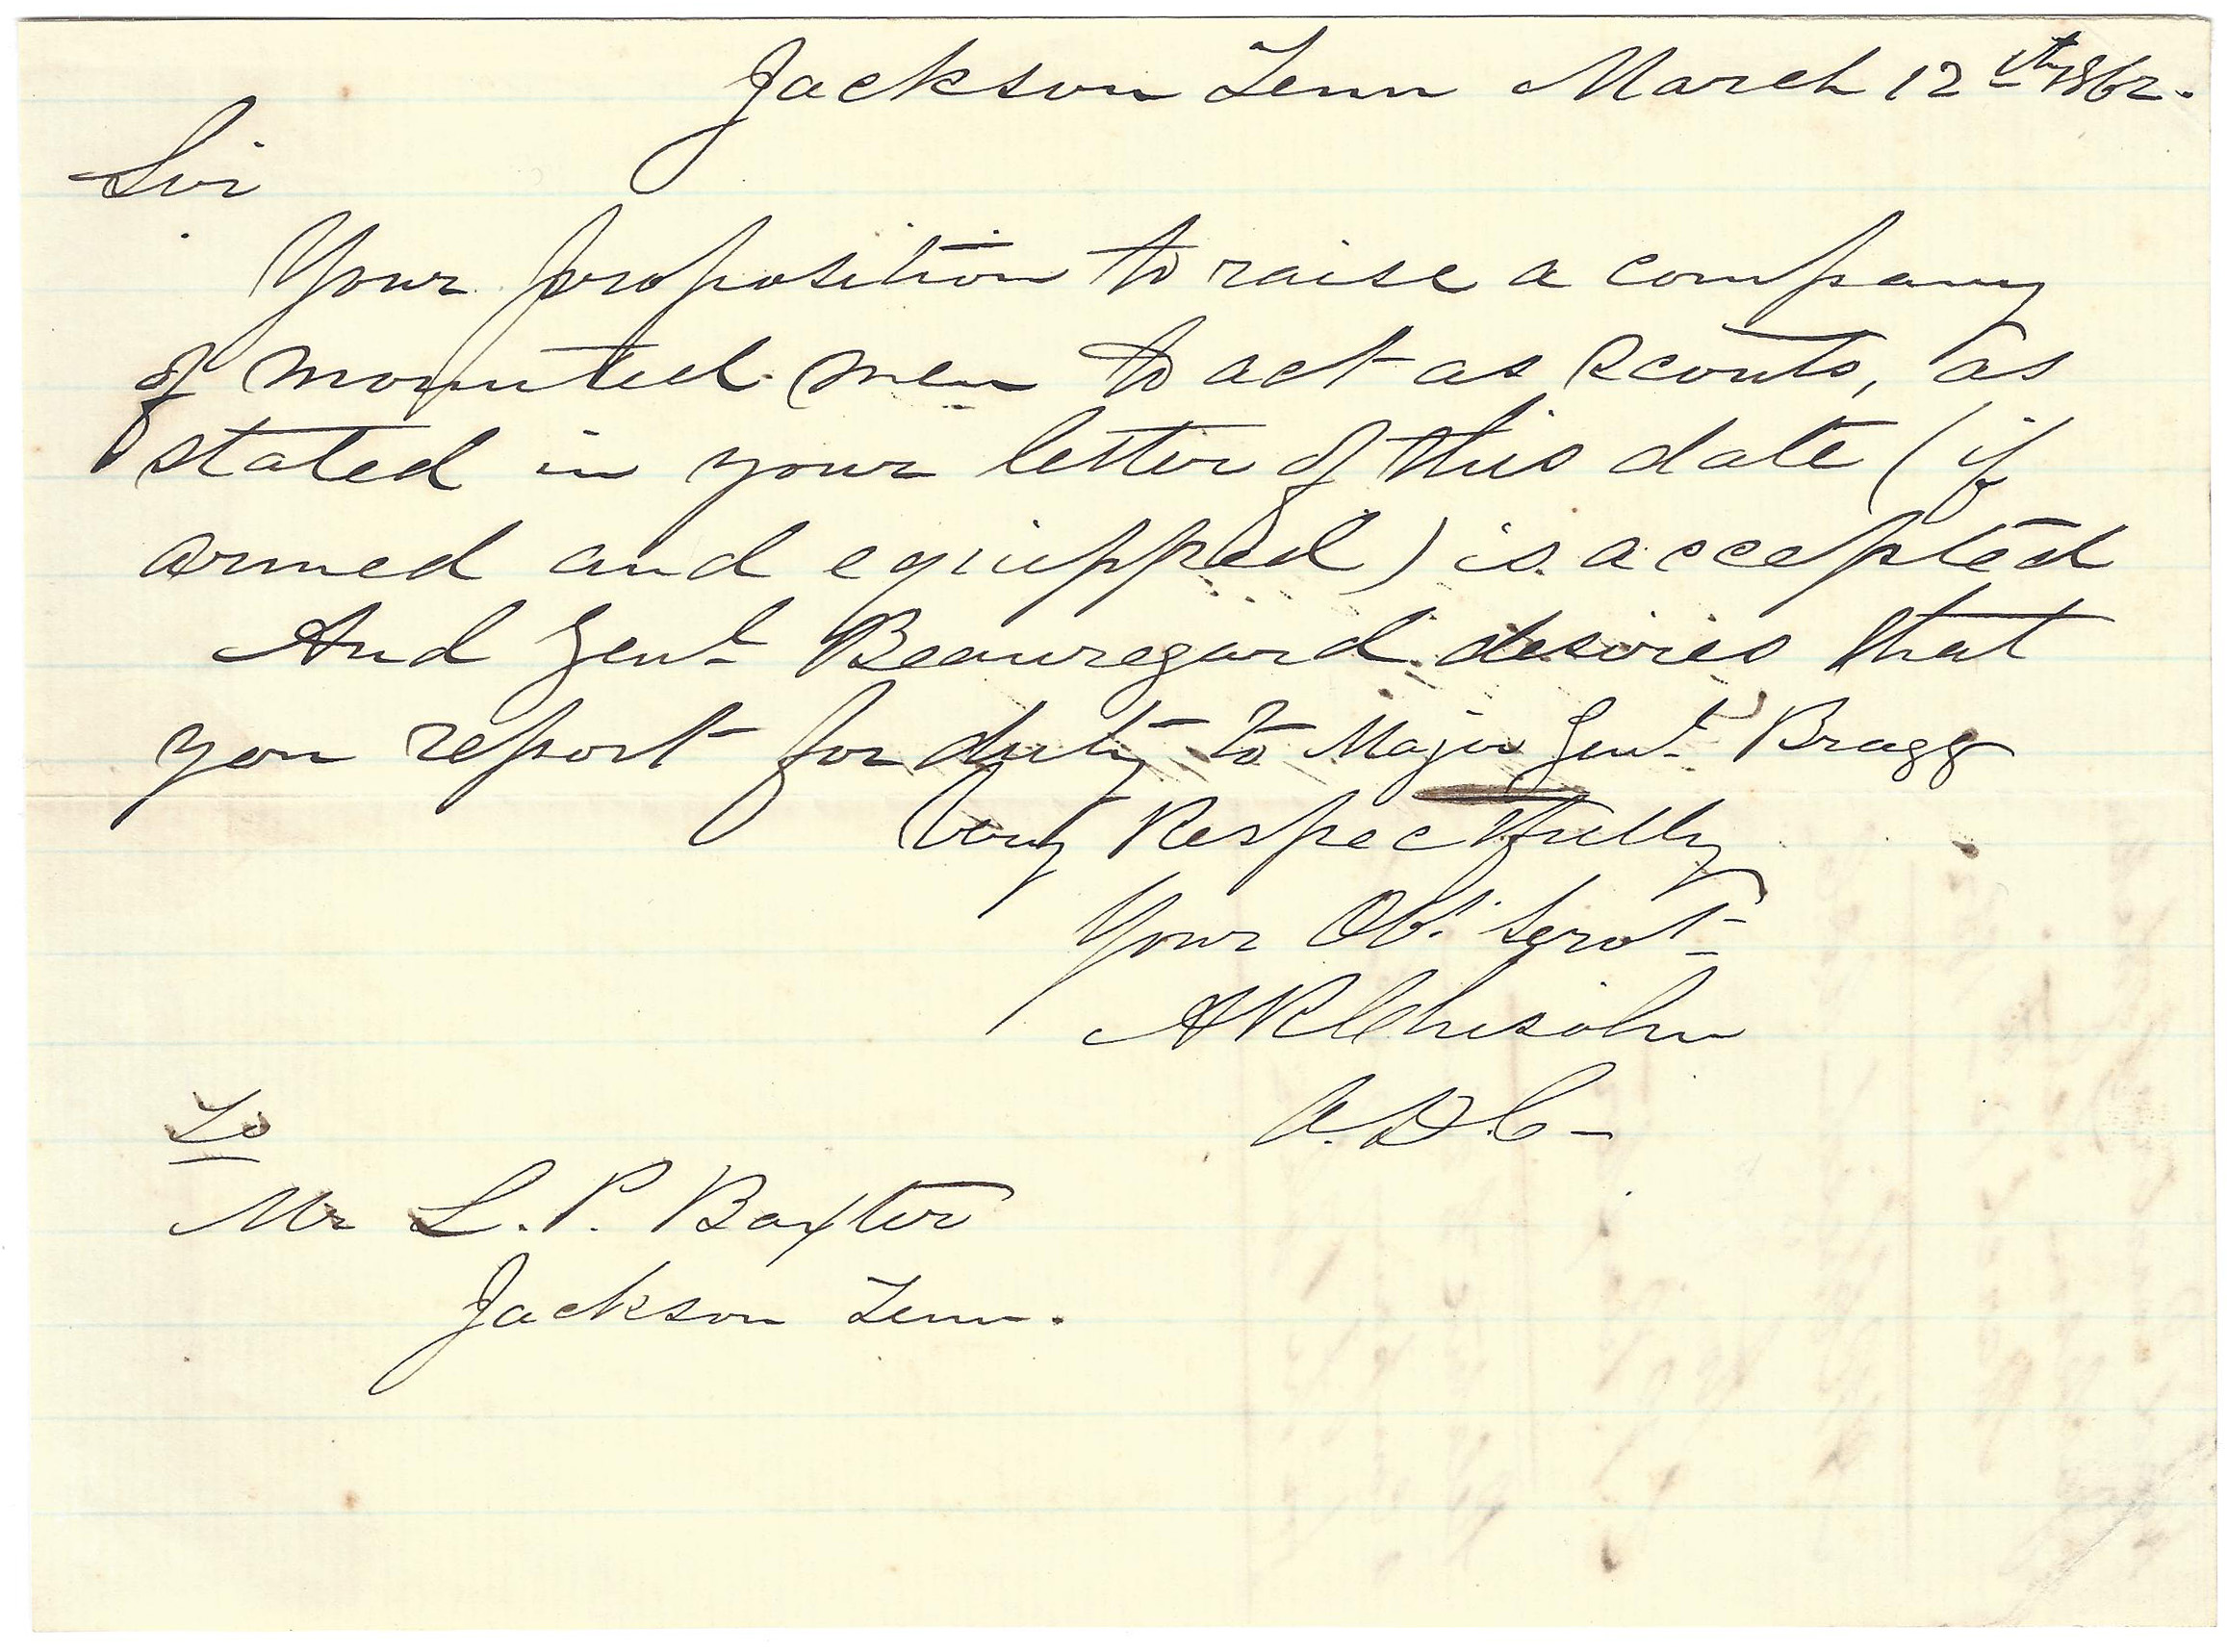 Jackson Tenn March 12th 1862.
Sir
Your proposition to raise a company
of mounted men to act as scouts, as
stated in your letter of this date (if
armed and equipped) is accepted
And Genl Beauregard desires that
you report for duty to Major Genl Bragg
Very Respectfully
Your Obt. Servt
A R Chisolm
A.D.C-
To
Mr L. P. Baxter
Jackson Tenn.